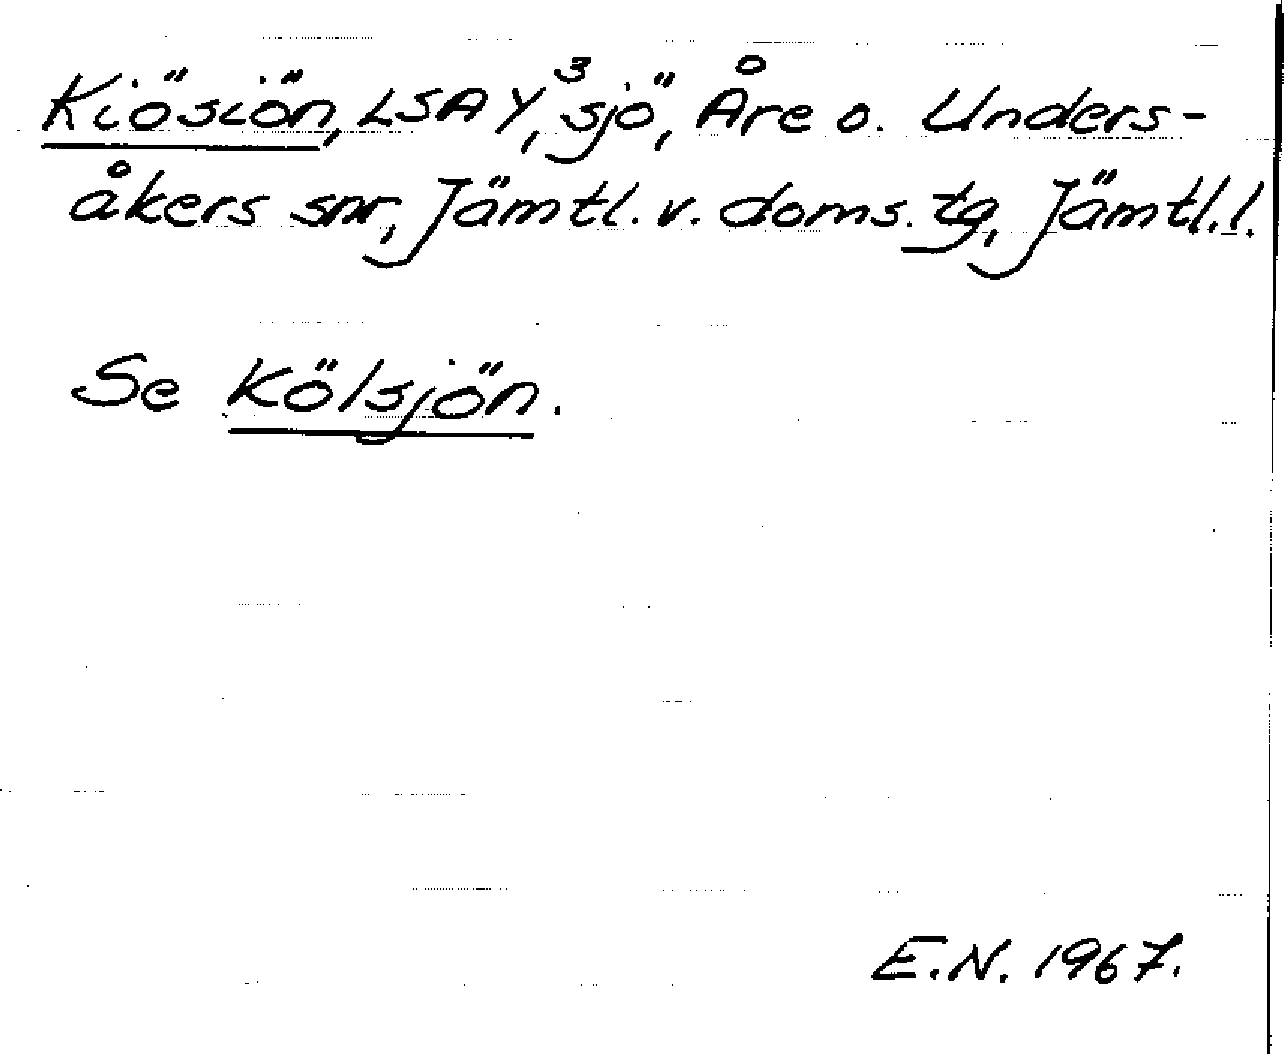 Kiösiön, LSA Y, ³sjö, Åre o. Unders-
åkers snr, Jämtl. v. doms. tg, Jämtl. l.
Se Kölsjön.
E.N. 1967.